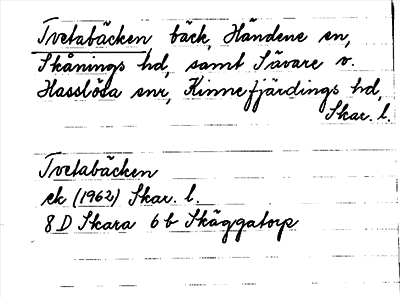 Tvetabäcken, bäck, Händene sn,
Skånings hd, samt Sävare o.
Hasslösa snr, Kinnefjärdings hd,
Skar. l.
Tvetabäcken
ek (1962) Skar. l.
8 D Skara 6 b Skäggatorp